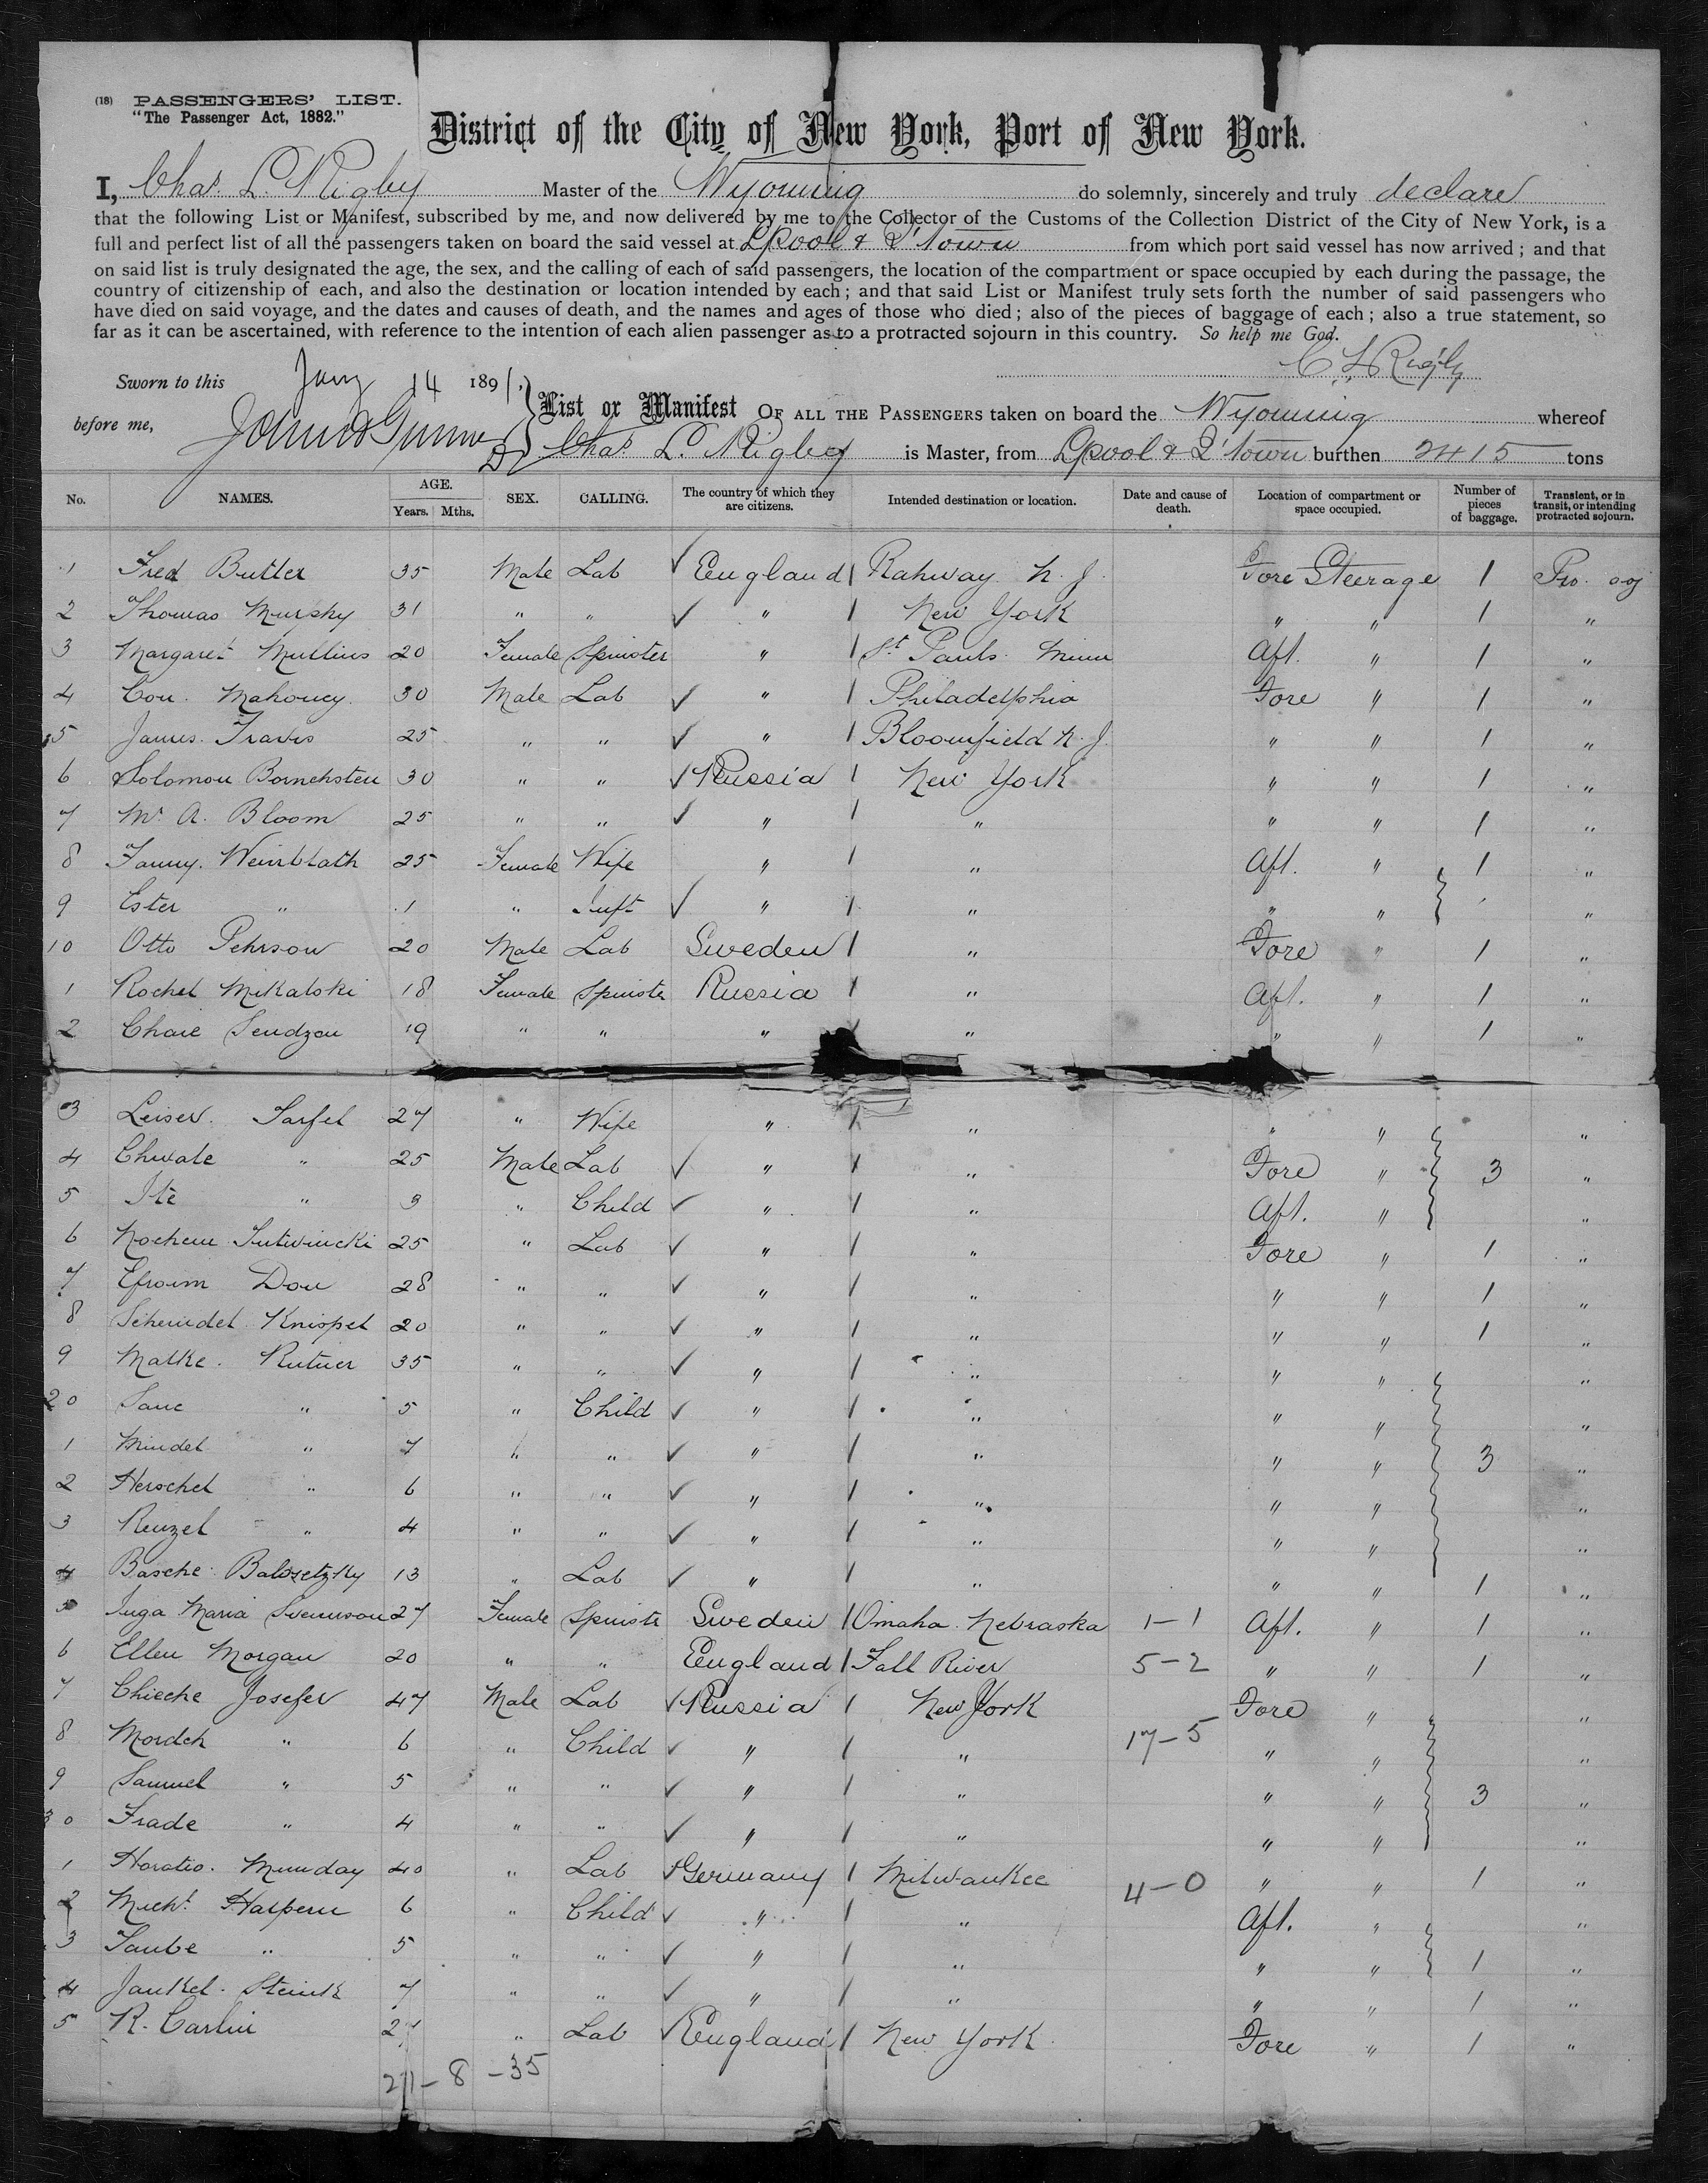 (18) PASSENGERS' LIST.
"The Passenger Act, 1882."
District of the City of New York, Port of New York.
I, Chas. L. Rigby Master of the Wyoming do solemnly, sincerely and truly declare
that the following List or Manifest, subscribed by me, and now delivered by me to the Collector of the Customs of the Collection District of the City of New York, is a
full and perfect list of all the passengers taken on board the said vessel at Lpool & Q'town from which port said vessel has now arrived ; and that
on said list is truly designated the age, the sex, and the calling of each of said passengers, the location of the compartment or space occupied by each during the passage, the
country of citizenship of each, and also the destination or location intended by each ; and that said List or Manifest truly sets forth the number of said passengers who
have died on said voyage, and the dates and causes of death, and the names and ages of those who died ; also of the pieces of baggage of each ; also a true statement, so
far as it can be ascertained, with reference to the intention of each alien passenger as to a protracted sojourn in this country. So help me God.
C. L. Rigby
Sworn to this Jany 14 1891,
before me,
List or Manifest OF ALL THE PASSENGERS taken on board the Wyoming whereof
Chas. L. Rigby is Master, from Lpool & Q'town burthen 2415 tons
No. NAMES. AGE. Years. Mths. SEX. CALLING. The country of which they are citizens. Intended destination or location. Date and cause of death. Location of compartment or space occupied. Number of pieces of baggage. Transient, or in transit, or intending protracted sojourn.
1 Fred Butler 35 Male Lab ✓ England / Rahway N. J. Fore Steerage 1 Pro.
2 Thomas Murphy 31 " " ✓ " / New York " " 1 "
3 Margaret Mullins 20 Female Spinster " / St. Pauls. Minn Aft. " 1 "
4 Con. Mahoney. 30 Male Lab ✓ " / Philadelphia Fore " 1 "
5 James. Travis 25 " " ✓ " / Bloomfield N. J. " " 1 "
6 Solomon Bornehsten 30 " " ✓ Russia / New York " " 1 "
7 Mr. A. Bloom 25 " " ✓ " / " " " 1 "
8 Fanny. Weinblath 25 Female Wife " / " Aft. " 1 "
9 Ester " 1 " Inft ✓ " / " " " "
10 Otto Pehrson 20 Male Lab Sweden / " Fore " 1 "
1 Rochel Mikalski 18 Female Spinster Russia / " Aft. " 1 "
2 Chaie Sendzon 19 " " " / " " " 1 "
3 Leiser. Sarfel 27 " Wife " / " " " "
4 Chwale " 25 Male Lab ✓ " / " Fore " 3 "
5 Ite " 3 " Child ✓ " / " Aft. " "
6 Nochem Lutwincki 25 " Lab ✓ " / " Fore " 1 "
7 Efroim Don 28 " " ✓ " / " " " 1 "
8 Scheindel Knispel 20 " " ✓ " / " " " 1 "
9 Malke. Rutner 35 " " ✓ " / " " " "
20 Sane " 5 " Child ✓ " / " " " "
1 Mindel " 7 " " ✓ " / " " " 3 "
2 Herschel " 6 " " ✓ " / " " " "
3 Renzel " 4 " " ✓ " / " " " "
4 Basche Balosetzky 13 " Lab ✓ " / " " " 1 "
5 Inga Maria Svennson 27 Female Spinstr Sweden / Omaha Nebraska 1-1 Aft. " 1 "
6 Ellen Morgan 20 " " England / Fall River 5-2 " " 1 "
7 Chieche Josefer 47 Male Lab ✓ Russia / New York Fore " "
8 Mordch " 6 " Child ✓ " / " 17-5 " " "
9 Samuel " 5 " " ✓ " / " " " 3 "
30 Frade " 4 " " ✓ " / " " " "
1 Horatio. Munday 40 " Lab ✓ Germany / Milwaukee 4-0 " " 1 "
2 Michl. Halpern 6 " Child ✓ " / " Aft. " "
3 Taube " 5 " " ✓ " / " " " 1 "
4 Jankel. Steink 7 " " ✓ " / " " " 1 "
5 R. Carlin 27 " Lab ✓ England / New York Fore " 1 "
27-8-35